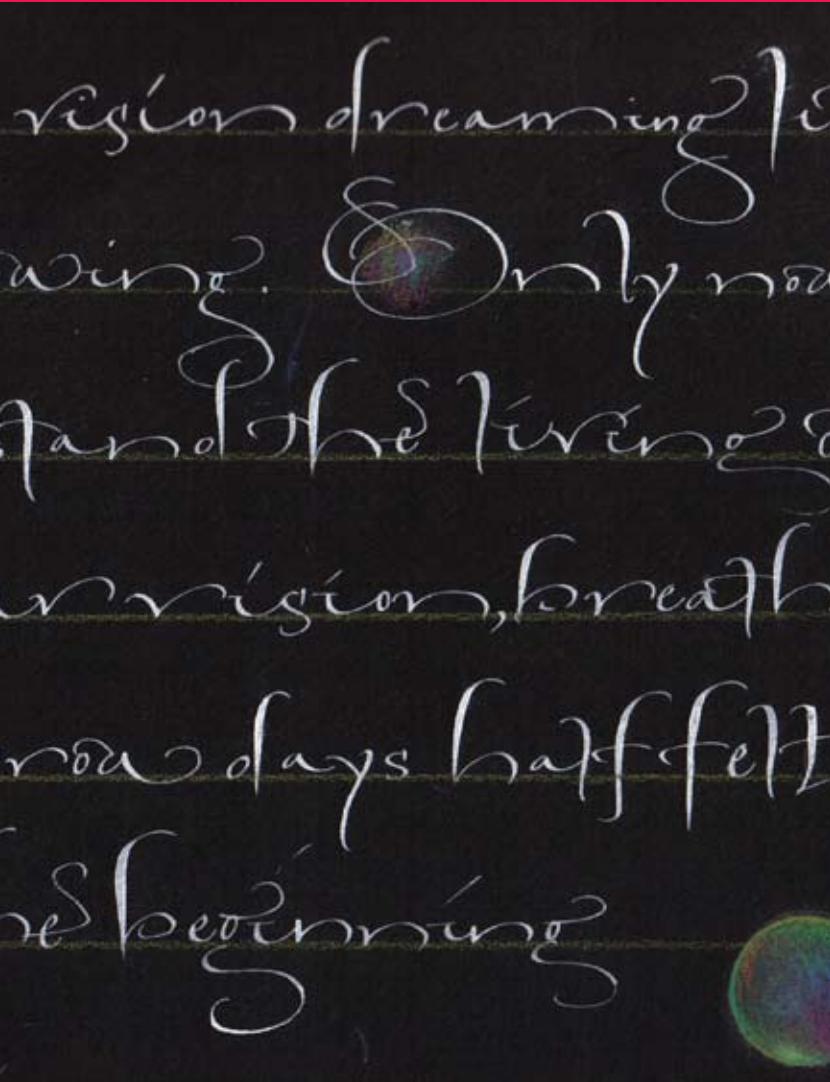 vision dreaming li
wing. Only now
tand the living
ur vision, breath
row days half felt
he beginning